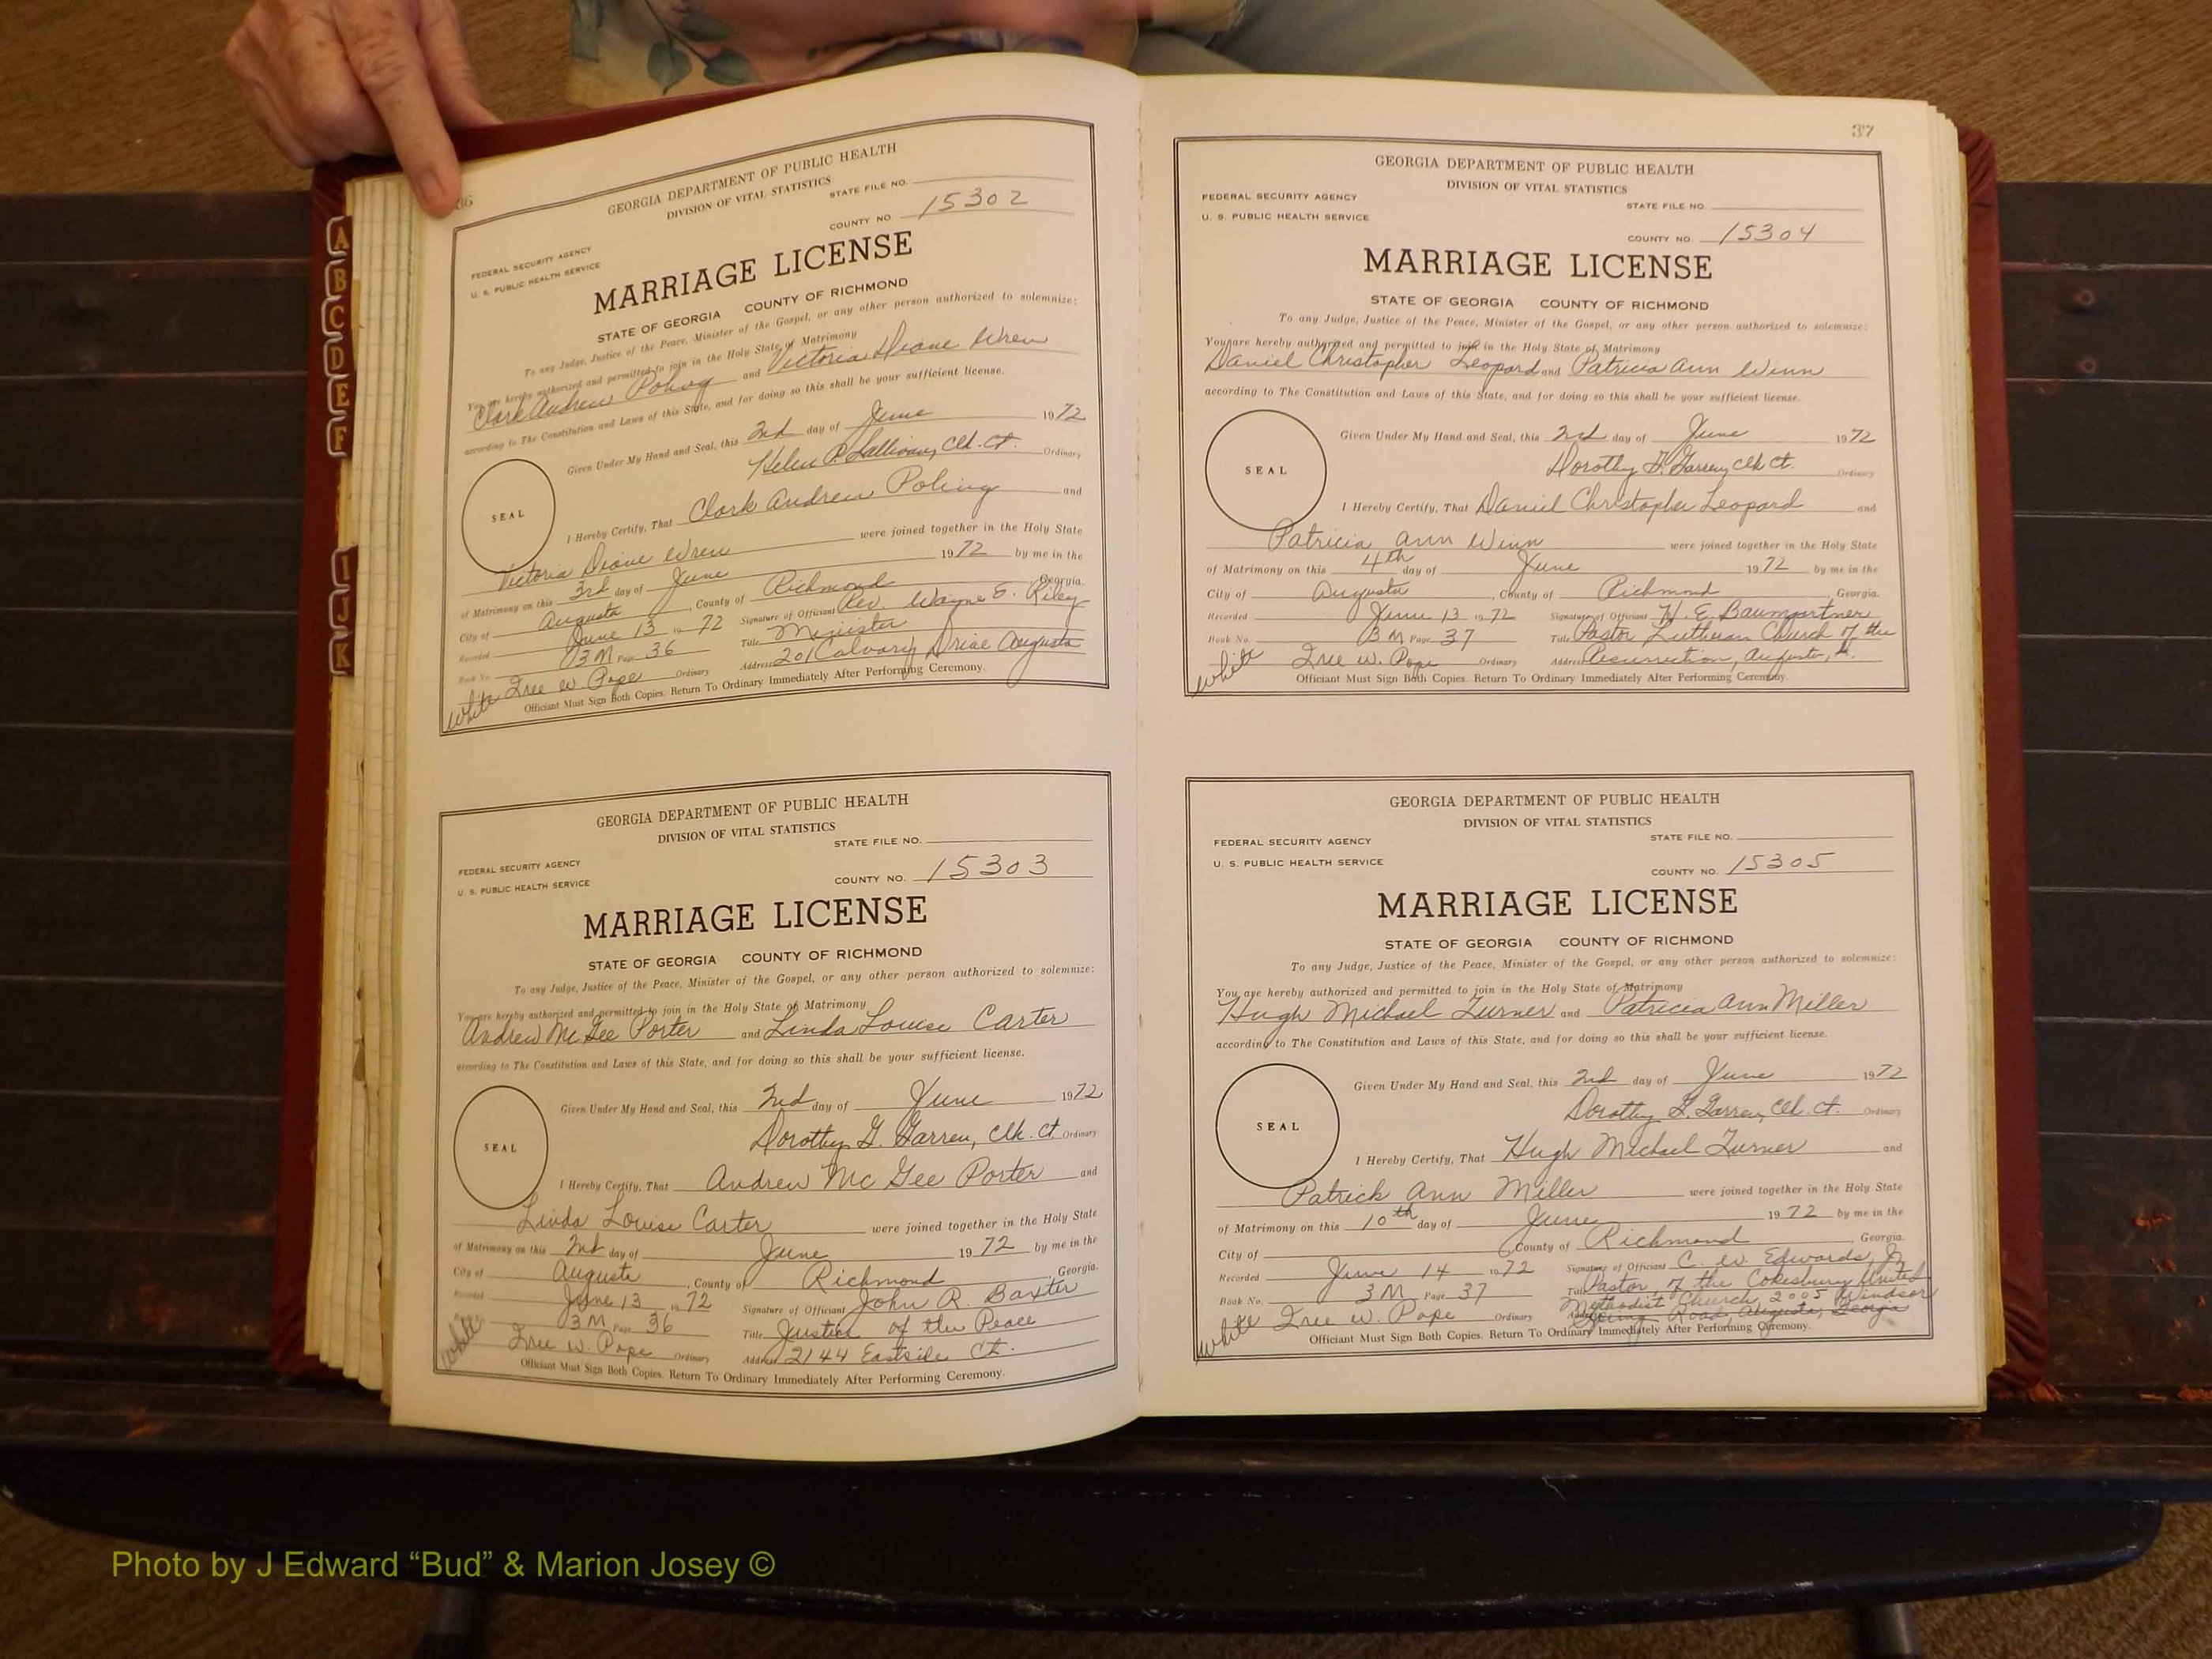 36
GEORGIA DEPARTMENT OF PUBLIC HEALTH
DIVISION OF VITAL STATISTICS
STATE FILE NO.
COUNTY NO. 15302
FEDERAL SECURITY AGENCY
U. S. PUBLIC HEALTH SERVICE
MARRIAGE LICENSE
STATE OF GEORGIA COUNTY OF RICHMOND
To any Judge, Justice of the Peace, Minister of the Gospel, or any other person authorized to solemnize:
You are hereby authorized and permitted to join in the Holy State of Matrimony
Clark Andrew Poling and Victoria Diane Wren
according to The Constitution and Laws of this State, and for doing so this shall be your sufficient license.
Given Under My Hand and Seal, this 2nd day of June 1972
Helen P. Sullivan, Clk. Ct. Ordinary
SEAL
I Hereby Certify, That Clark Andrew Poling and
Victoria Diane Wren were joined together in the Holy State
of Matrimony on this 3rd day of June 1972 by me in the
City of Augusta, County of Richmond Georgia.
Recorded June 13 1972 Signature of Officiant Rev. Wayne S. Riley
Book No. 3M Page 36 Title Minister
Tree W. Pope Ordinary Address 201 Calvary Drive Augusta
white
Officiant Must Sign Both Copies. Return To Ordinary Immediately After Performing Ceremony.
GEORGIA DEPARTMENT OF PUBLIC HEALTH
DIVISION OF VITAL STATISTICS
STATE FILE NO.
FEDERAL SECURITY AGENCY
U. S. PUBLIC HEALTH SERVICE
COUNTY NO. 15303
MARRIAGE LICENSE
STATE OF GEORGIA COUNTY OF RICHMOND
To any Judge, Justice of the Peace, Minister of the Gospel, or any other person authorized to solemnize:
You are hereby authorized and permitted to join in the Holy State of Matrimony
Andrew McGee Porter and Linda Louise Carter
according to The Constitution and Laws of this State, and for doing so this shall be your sufficient license.
Given Under My Hand and Seal, this 2nd day of June 1972
Dorothy G. Garren, Clk. Ct Ordinary
SEAL
I Hereby Certify, That Andrew Mc Gee Porter and
Linda Louise Carter were joined together in the Holy State
of Matrimony on this 2nd day of June 1972 by me in the
City of Augusta, County of Richmond Georgia.
Recorded June 13 1972 Signature of Officiant John R. Baxter
Book No. 3M Page 36 Title Justice of the Peace
white
Tree W. Pope Ordinary Address 2144 Eastside Ct.
Officiant Must Sign Both Copies. Return To Ordinary Immediately After Performing Ceremony.
37
GEORGIA DEPARTMENT OF PUBLIC HEALTH
DIVISION OF VITAL STATISTICS
FEDERAL SECURITY AGENCY
U. S. PUBLIC HEALTH SERVICE
STATE FILE NO.
COUNTY NO. 15304
MARRIAGE LICENSE
STATE OF GEORGIA COUNTY OF RICHMOND
To any Judge, Justice of the Peace, Minister of the Gospel, or any other person authorized to solemnize:
You are hereby authorized and permitted to join in the Holy State of Matrimony
Daniel Christopher Leopard and Patricia Ann Winn
according to The Constitution and Laws of this State, and for doing so this shall be your sufficient license.
Given Under My Hand and Seal, this 2nd day of June 1972
Dorothy G. Garren, Clk Ct. Ordinary
SEAL
I Hereby Certify, That Daniel Christopher Leopard and
Patricia Ann Winn were joined together in the Holy State
of Matrimony on this 4th day of June 1972 by me in the
City of Augusta, County of Richmond, Georgia.
Recorded June 13 1972 Signature of Officiant H. E. Baumgartner
Book No. 3M Page 37 Title Pastor Lutheran Church of the
white Tree W. Pope Ordinary Address Resurrection, Augusta,
Officiant Must Sign Both Copies. Return To Ordinary Immediately After Performing Ceremony.
GEORGIA DEPARTMENT OF PUBLIC HEALTH
DIVISION OF VITAL STATISTICS
FEDERAL SECURITY AGENCY
U. S. PUBLIC HEALTH SERVICE
STATE FILE NO.
COUNTY NO. 15305
MARRIAGE LICENSE
STATE OF GEORGIA COUNTY OF RICHMOND
To any Judge, Justice of the Peace, Minister of the Gospel, or any other person authorized to solemnize:
You are hereby authorized and permitted to join in the Holy State of Matrimony
Hugh Michael Turner and Patricia Ann Miller
according to The Constitution and Laws of this State, and for doing so this shall be your sufficient license.
Given Under My Hand and Seal, this 2nd day of June 1972
Dorothy G. Garren, Clk. Ct. Ordinary
SEAL
I Hereby Certify, That Hugh Michael Turner and
Patrick Ann Miller were joined together in the Holy State
of Matrimony on this 10th day of June 1972 by me in the
City of , County of Richmond, Georgia.
Recorded June 14 1972 Signature of Officiant C. W. Edwards, Jr
Book No. 3M Page 37 Title Pastor of the Cokesbury United
Methodist Church, 2005 Windsor
white Tree W. Pope Ordinary Address Spring Road, Augusta, Georgia
Officiant Must Sign Both Copies. Return To Ordinary Immediately After Performing Ceremony.
A
B
C
D
E
F
I
J
K
Photo by J Edward “Bud” & Marion Josey ©